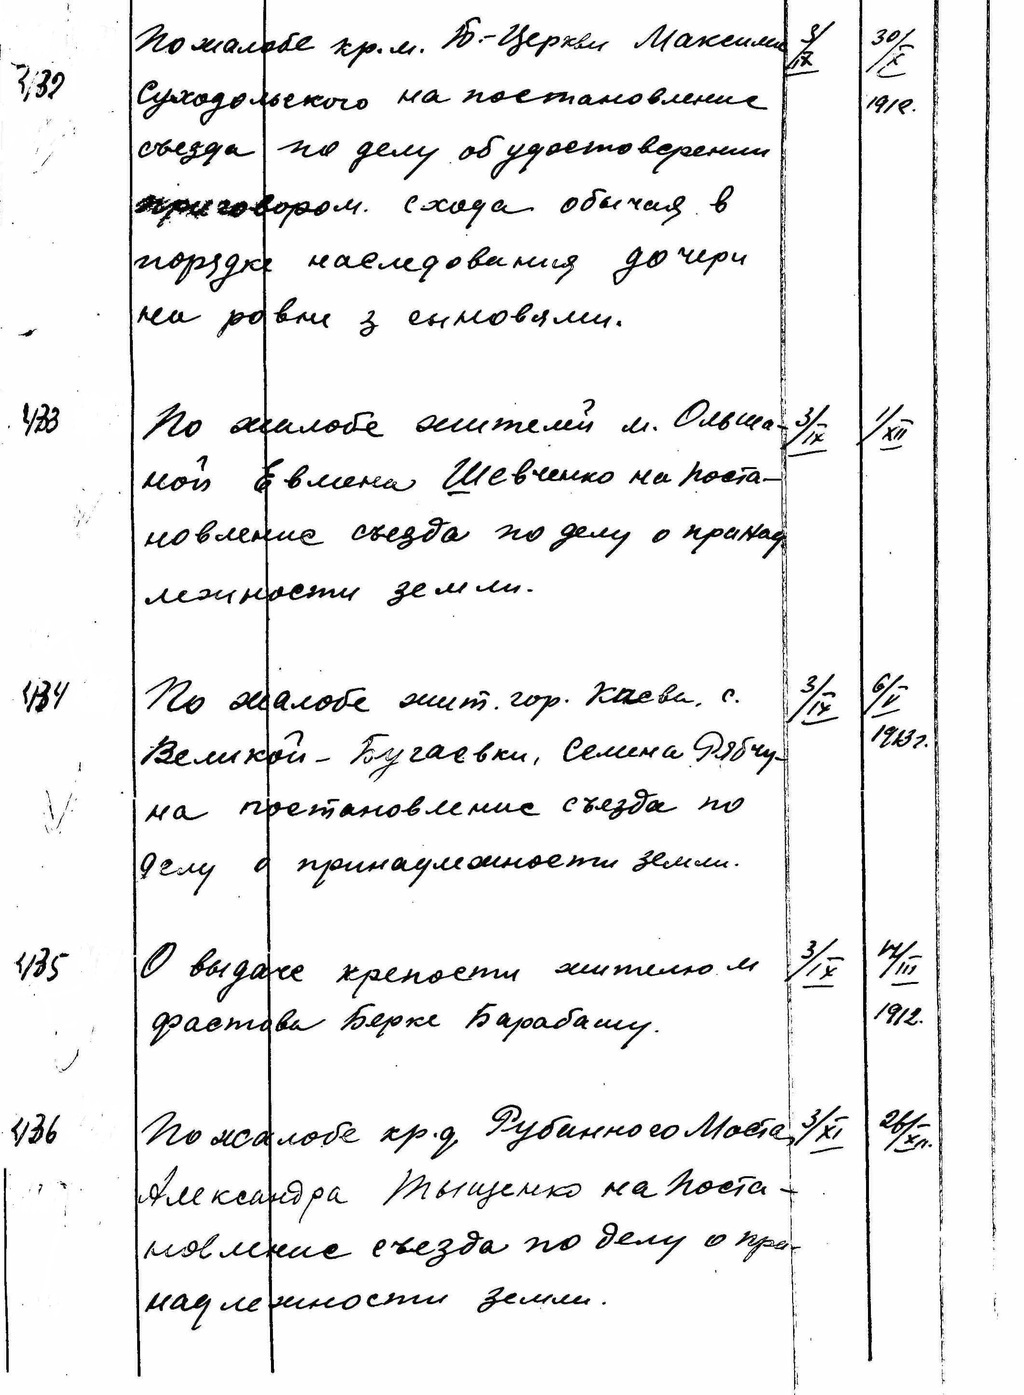 432 По жалобе кр. м. Б.-Церкви Максима 3/IX 30/X
Суходольского на постановление 1912.
съезда по делу об удостоверении
приговором. схода обычая в
порядке наследования дочери
на ровне з сыновями.
433 По жалобе жителей м. Ольша- 3/IX 1/XII
ной Евмена Шевченко на поста-
новление съезда по делу о принад
лежности земли.
434 По жалобе жит. гор. Киева, с. 3/IX 6/V
Великой-Бугаевки, Семена Рябчу- 1913 г.
на постановление съезда по
делу о принадлежности земли.
435 О выдаче крепости жителю м 3/IX /III
Фастова Берке Барабашу. 1912.
436 По жалобе кр. д. Рубанного Моста, 3/XI 26/XII.
Александра Тыщенко на поста-
новление съезда по делу о при-
надлежности земли.